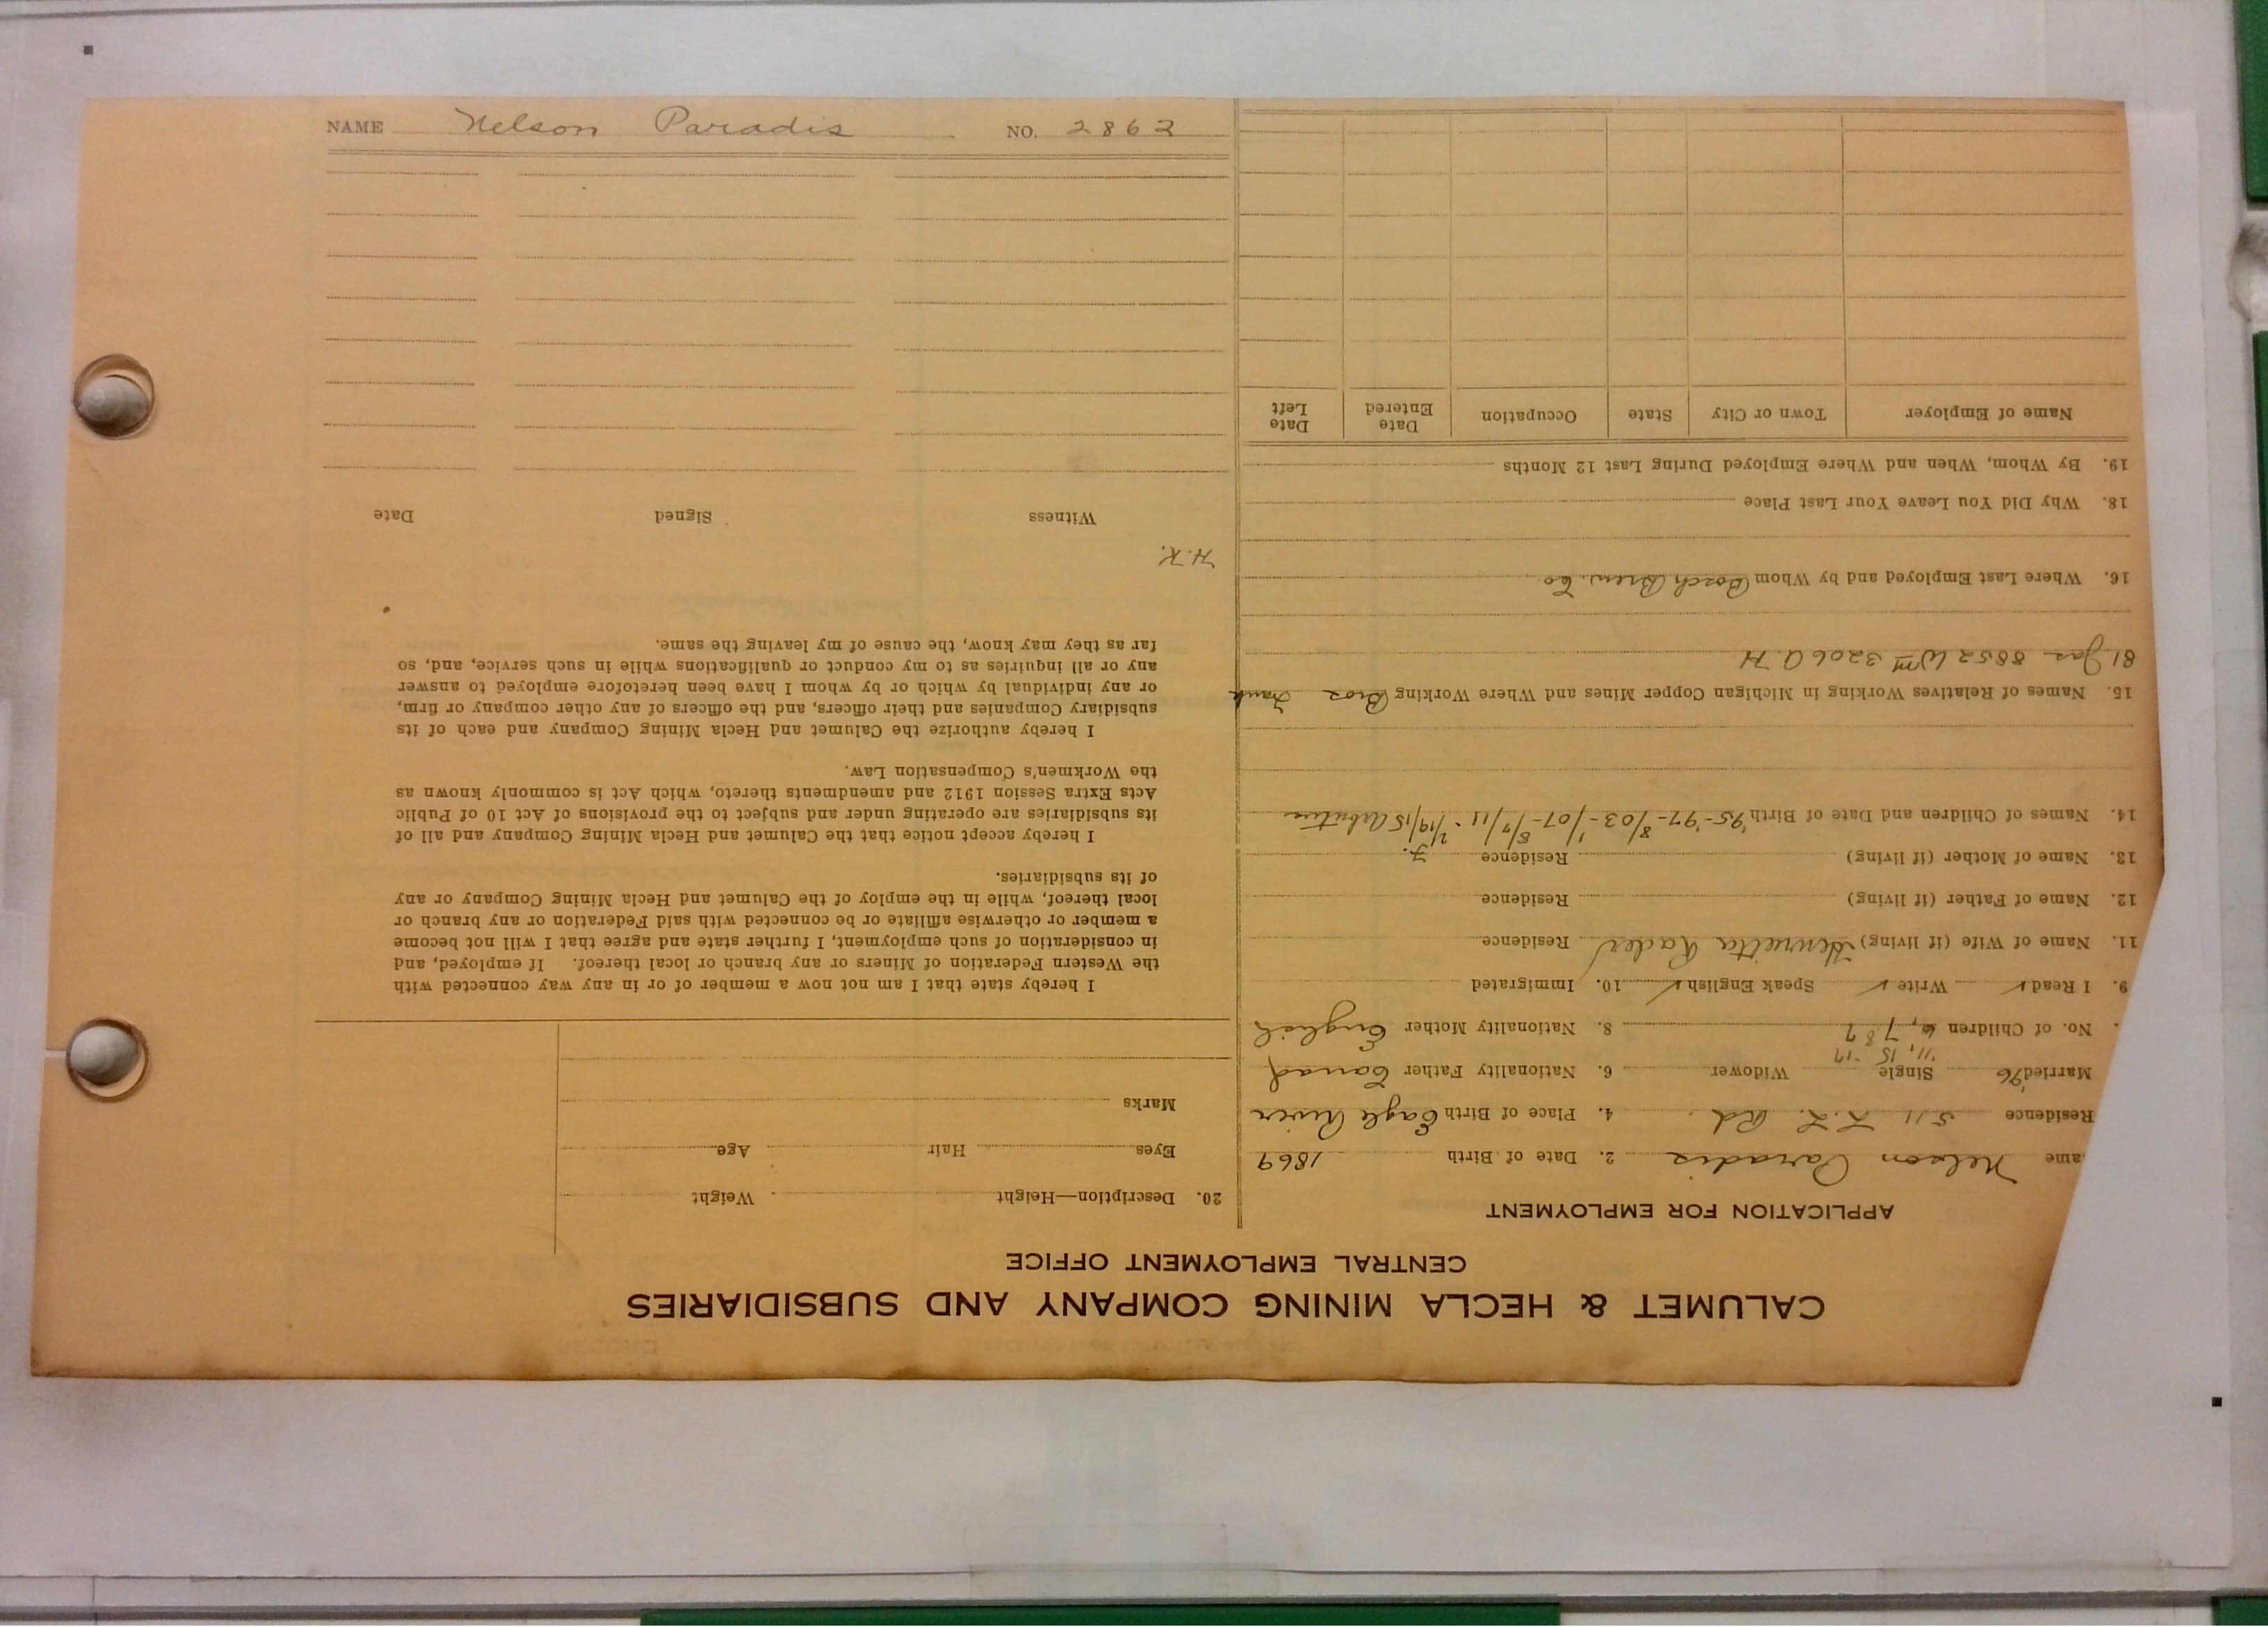 CALUMET & HECLA MINING COMPANY AND SUBSIDIARIES
CENTRAL EMPLOYMENT OFFICE
APPLICATION FOR EMPLOYMENT
ame Nelson Paradis 2. Date of Birth 1869
Residence 511 L. L. Rd. 4. Place of Birth Eagle River
Married '96 Single Widower 6. Nationality Father Canad
'11, 15 '17
No. of Children 6, 7 8 ? 8. Nationality Mother English
9. I Read ✓ Write ✓ Speak English ✓ 10. Immigrated
11. Name of Wife (if living) Henrietta Rader Residence
12. Name of Father (if living) Residence
13. Name of Mother (if living) Residence
14. Names of Children and Date of Birth '95-'97-8/03-1/07-8/7/11-2/19/15
15. Names of Relatives Working in Michigan Copper Mines and Where Working Bros Frank
81 Jas 8852 Wm 3206 A H
16. Where Last Employed and by Whom Bosch Brew. Co
18. Why Did You Leave Your Last Place
19. By Whom, When and Where Employed During Last 12 Months
Name of Employer Town or City State Occupation Date Entered Date Left
20. Description—Height Weight
Eyes Hair Age
Marks
I hereby state that I am not now a member of or in any way connected with
the Western Federation of Miners or any branch or local thereof. If employed, and
in consideration of such employment, I further state and agree that I will not become
a member or otherwise affiliate or be connected with said Federation or any branch or
local thereof, while in the employ of the Calumet and Hecla Mining Company or any
of its subsidiaries.
I hereby accept notice that the Calumet and Hecla Mining Company and all of
its subsidiaries are operating under and subject to the provisions of Act 10 of Public
Acts Extra Session 1912 and amendments thereto, which Act is commonly known as
the Workmen's Compensation Law.
I hereby authorize the Calumet and Hecla Mining Company and each of its
subsidiary Companies and their officers, and the officers of any other company or firm,
or any individual by which or by whom I have been heretofore employed to answer
any or all inquiries as to my conduct or qualifications while in such service, and, so
far as they may know, the cause of my leaving the same.
H.K.
Witness Signed Date
NAME Nelson Paradis NO. 2862